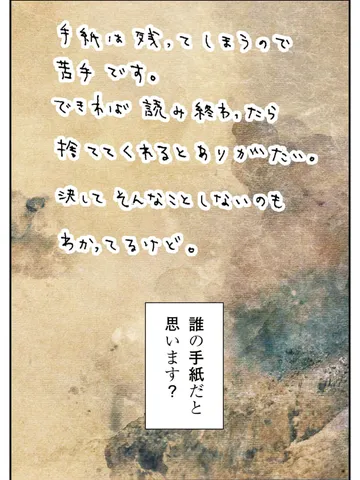 手紙は残ってしまうので
苦手です。
できれば読み終わったら
捨ててくれるとありがたい。
決してそんなことしないのも
わかってるけど。
誰の手紙だと
思います？